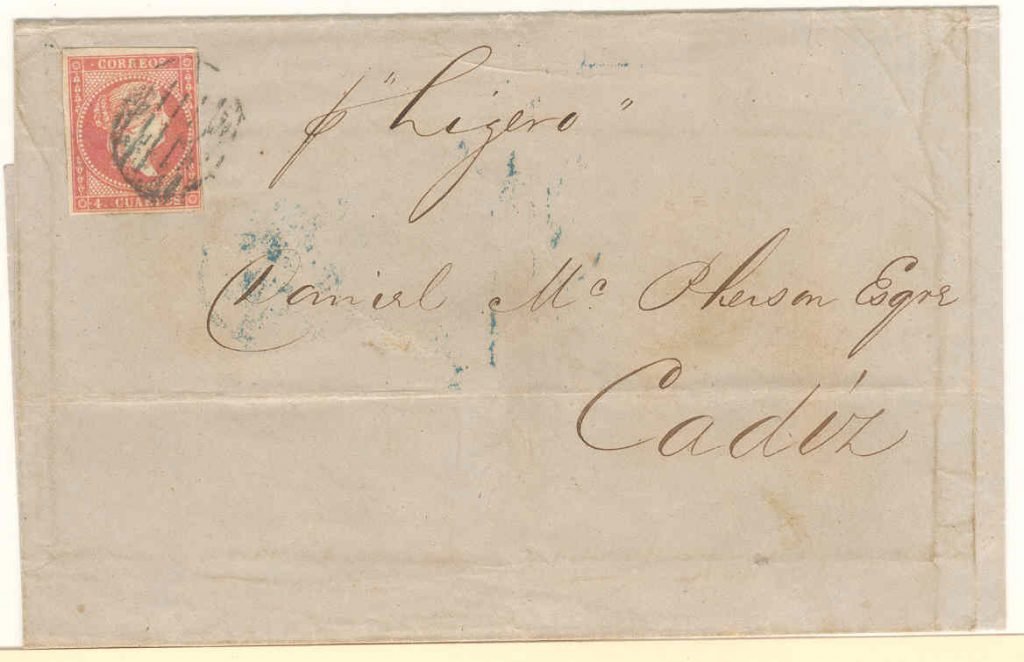 CORREOS
4 CUARTOS
p "Ligero"
Daniel Mc Pherson Esqre
Cadíz